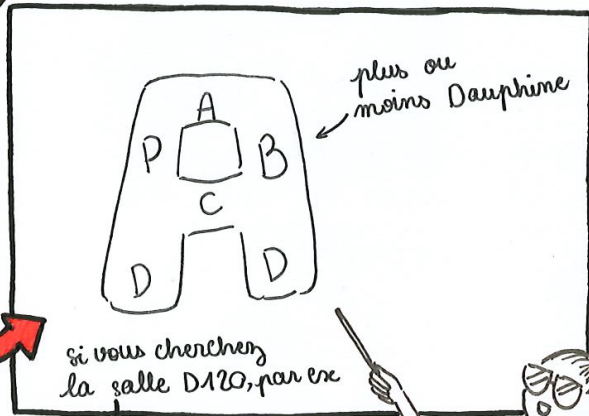 plus ou
moins Dauphine
A
P
B
C
D
D
si vous cherchez
la salle D120, par ex